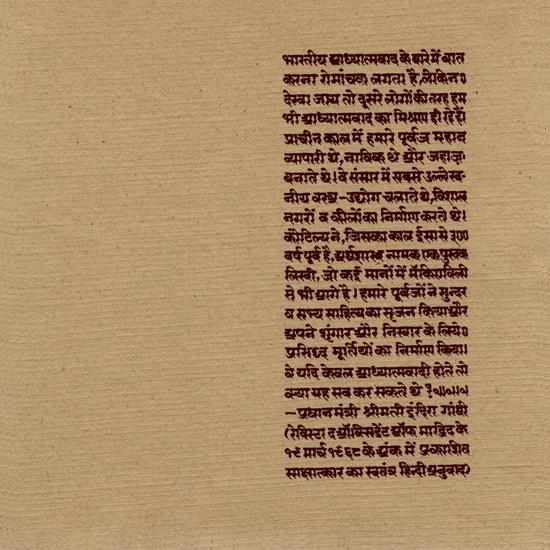 भारतीय आध्यात्मवाद के बारे में बात
करना रोमांचक लगता है, लेकिन
देखा जाय तो दूसरे लोगों की तरह हम
भी आध्यात्मवाद का मिश्रण ही रहे हैं।
प्राचीन काल में हमारे पूर्वज महान
व्यापारी थे, नाविक थे और जहाज़
बनाते थे। वे संसार में सबसे उल्लेख-
नीय वस्त्र-उद्योग चलाते थे, विशाल
नगरों व कीलों का निर्माण करते थे।
कौटिल्य ने, जिसका काल ईसा से ३००
वर्ष पूर्व है, अर्थशास्त्र नामक एक पुस्तक
लिखी, जो कई मानों में मॅकियाविली
से भी आगे है। हमारे पूर्वजों ने सुन्दर
व सभ्य साहित्य का सृजन किया और
अपने शृंगार और निखार के लिये
प्रसिद्ध मूर्तियों का निर्माण किया।
वे यदि केवल आध्यात्मवादी होते तो
क्या यह सब कर सकते थे?
—प्रधान मंत्री श्रीमती इंदिरा गांधी
(रेविस्टा द ऑक्सिडेंट ऑफ माड्रिड के
१९ मार्च १९६८ के अंक में प्रकाशित
साक्षात्कार का स्वतंत्र हिन्दी अनुवाद)